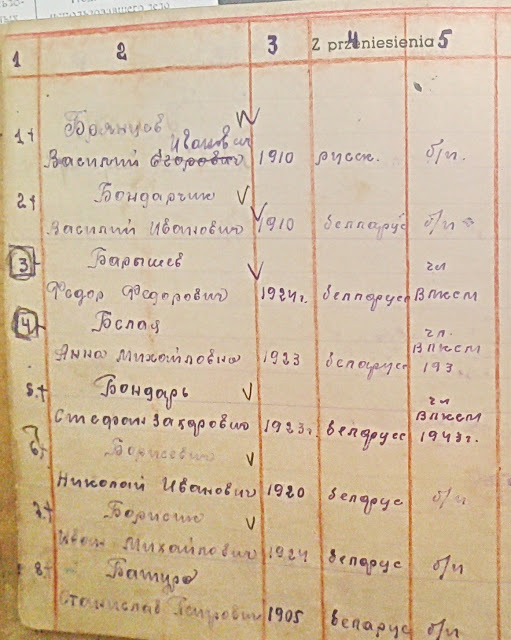 1 2 3 Z przeniesienia 4 5
Брянцев
Иванович
1+ Василий Егорович 1910 русск. б/п.
2+ Бондарчик
Василий Иванович 1910 беларус б/п
3 Барышев чл
Федор Федорович 1924г. беларус ВЛКСМ
4 Белая чл.
Анна Михайловна 1923 беларусс ВЛКСМ
193
5.+ Бондарь чл
Стефан Захарович 1923г. беларусс ВЛКСМ
1943г.
6+ Борисевич
Николай Иванович 1920 беларус б/п
7.+ Борисик
Иван Михайлович 1924 беларус б/п
8.+ Батура
Станислав Петрович 1905 беларус б/п